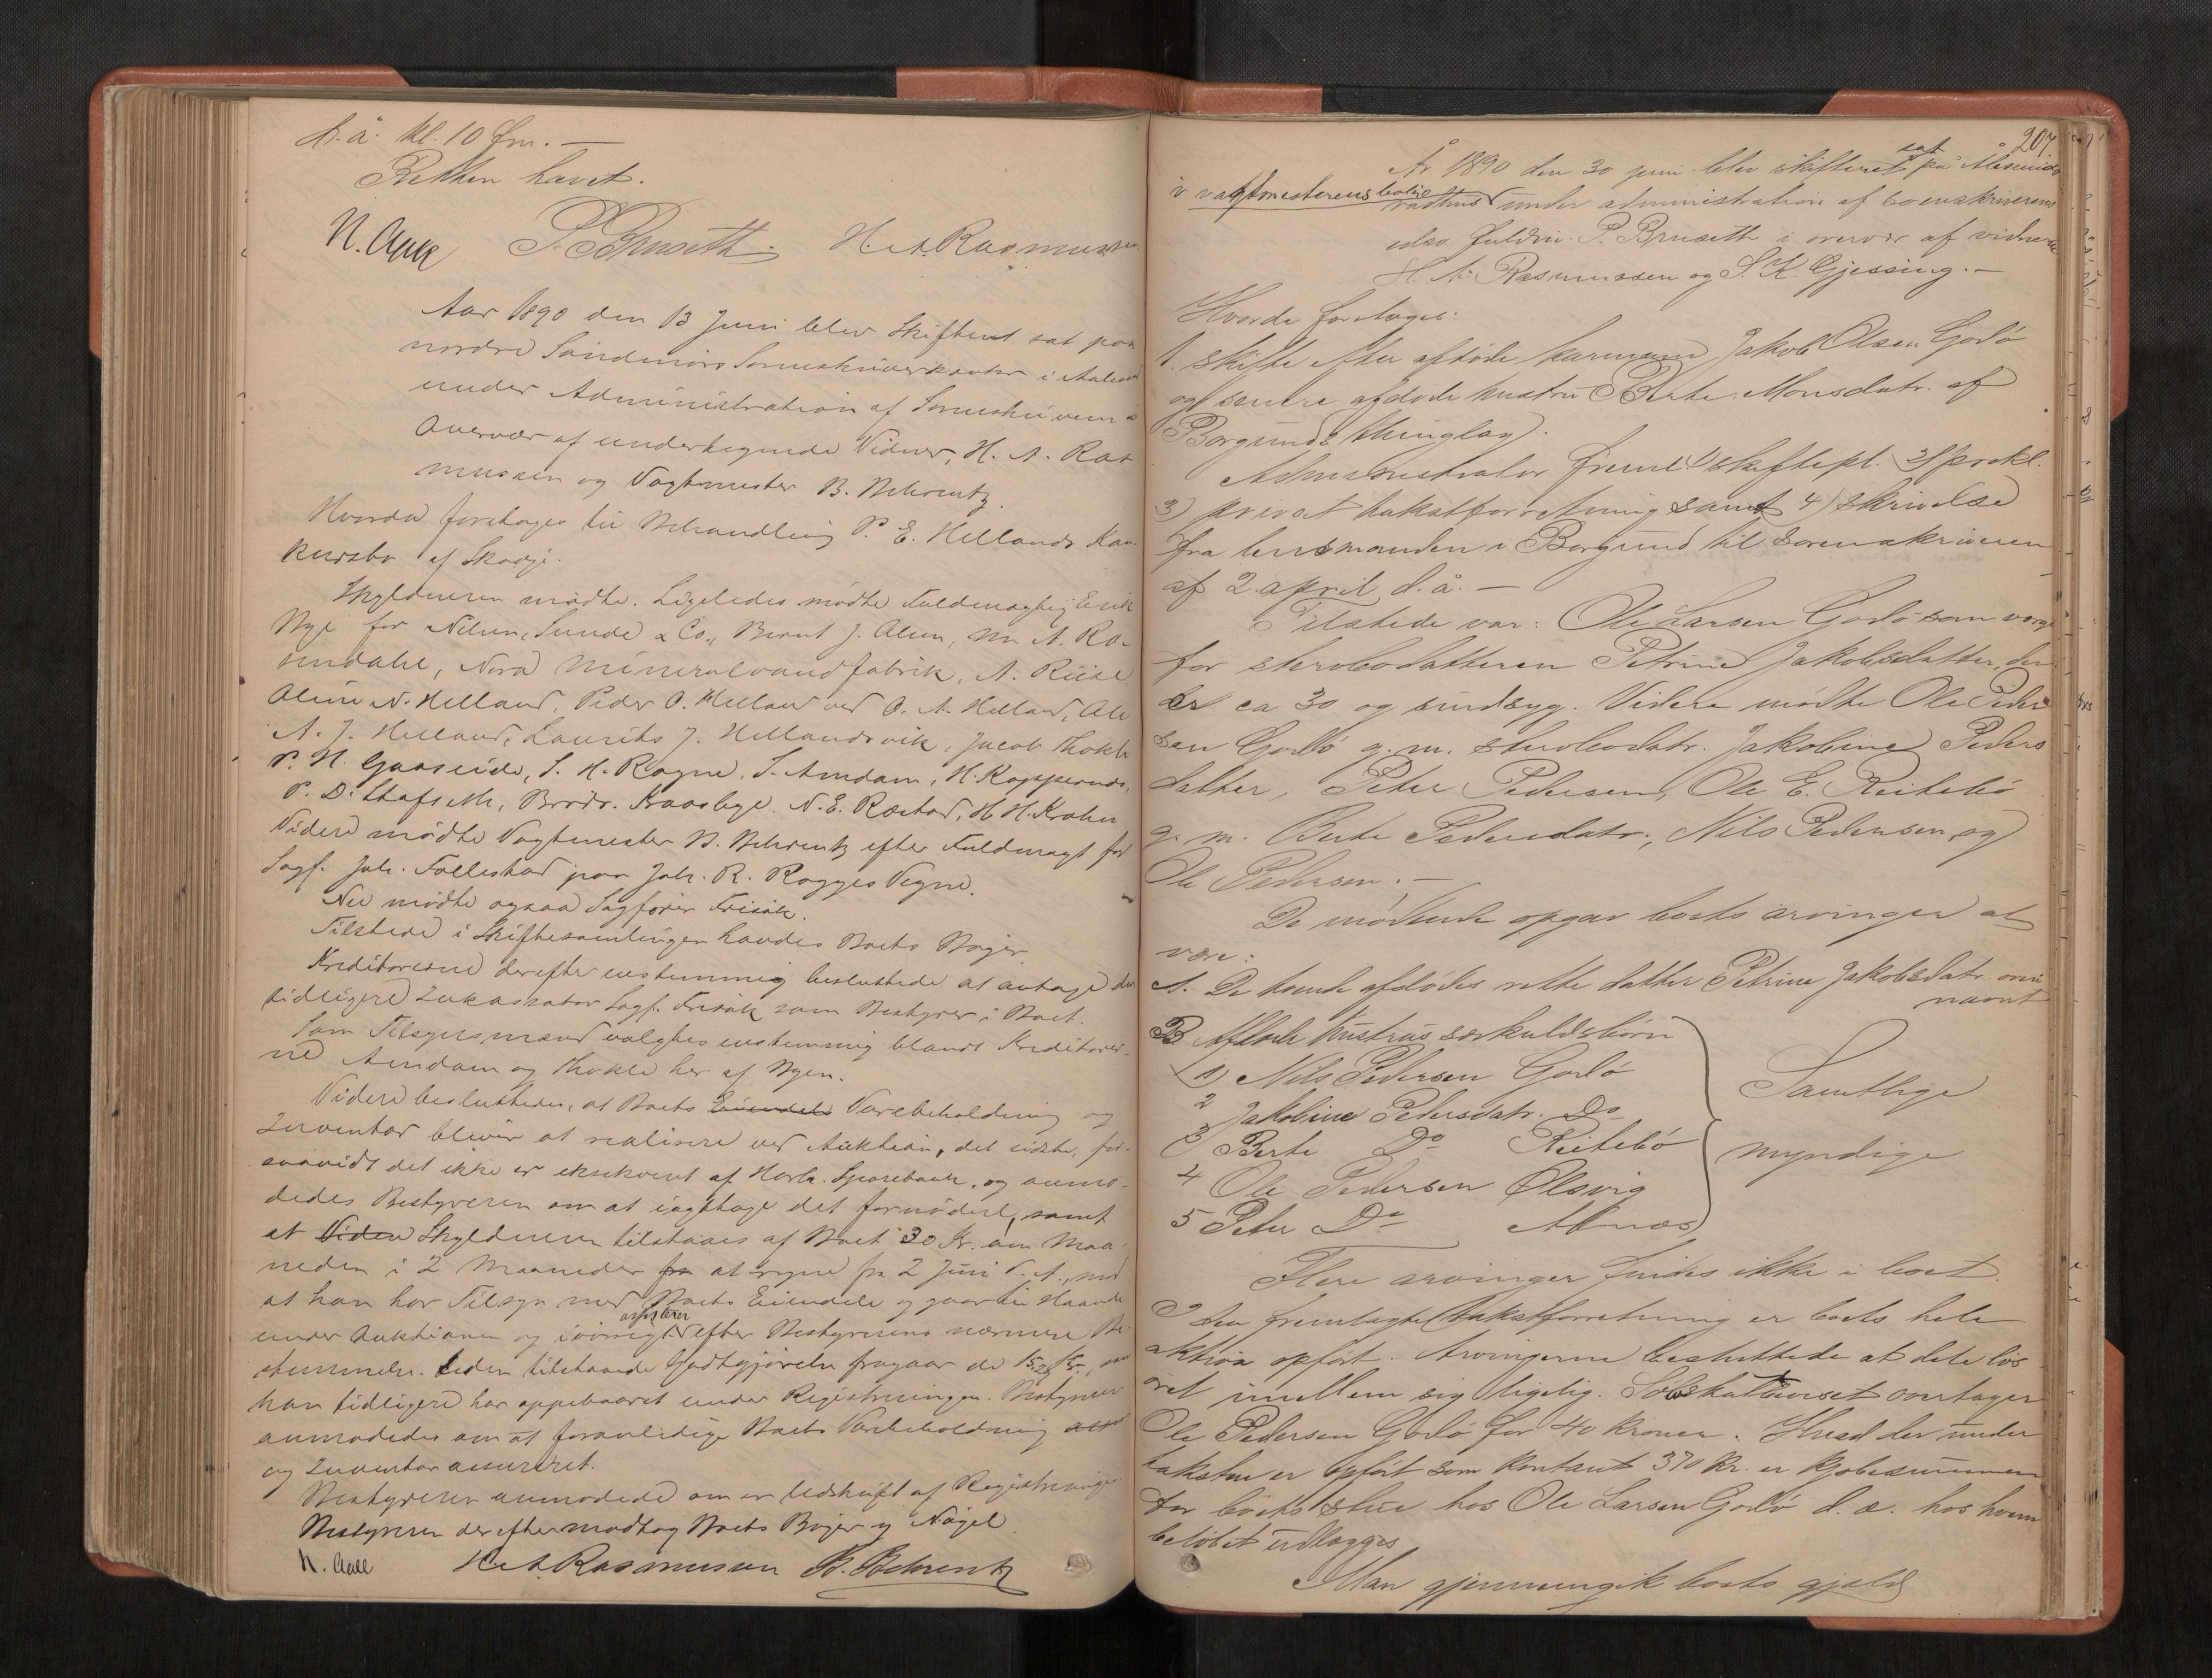 d. å. kl. 10 fm. —
Retten hævet.
N. Aall P. Bruseth. H. A. Rasmussen
Aar 1890 den 13 Juni blev Skifteret sat paa
nordre Søndmørs Sorenskriverkontor i Aalesund
under Administration af Sorenskriveren i
Overvær af undertegnede Vidner, H. A. Ras
mussen og Vagtmester B. Behrentz.
Hvorda foretoges til Behandling P. E. Hellands Kon-
kursbo af Skodje.
Skyldneren mødte. Ligeledes mødte Fuldmægtig Erik
Nye for Nilsen, Sunde & Co., Bernt J. Olsen, M. A. Ro-
sendahl, Nora Mineralvandfabrik, A. Riise
Oline N. Helland, Peder O. Helland ved O. A. Helland, Ole
A. J. Helland, Laurits J. Hellandsvik, Jacob Thokle
P. H. Gaaseide, S. H. Rogne, S. Amdam, H. Kopperud,
P. D. Stafseth, Brødr. Kraasbye. N. E. Ræstad, H. H. Krohn
Videre mødte Vagtmester B. Behrentz efter Fuldmagt for
Sagf. Joh. Follestad paa Joh. R. Rogges Vegne.
Nu mødte ogsaa Sagfører Frisak.
Tilstede i Skiftesamlingen havdes Boets Bøger.
Kreditorerne derefter enstemmig besluttede at antage den
tidligere Inkassator Sagf. Frisak som Bestyrer i Boet.
Som Tilsynsmænd valgtes enstemmig blandt Kreditorer-
ne Amdam og Thokle her af Byen.
Videre besluttedes, at Boets Eiendele Varebeholdning og
Inventar bliver at realisere ved Auktion, det sidste, for-
saavidt det ikke er eksekveret af Harh. Sparebank, og anmo-
dedes Bestyreren om at iagttage det fornødne, samt
at Viden Skyldneren tilstaaes af Boet 30 Kr. om Maa-
neden i 2 Maaneder fra at regne fra 2 Juni d. A., mod
at han har Tilsyn med Boets Eiendele og gaar til Haande
under Auktionen og iøvrigt efter Bestyrerens nærmere Be-
stemmelse. I den tilstaaede Godtgjørelse fragaar de 15 Kr., som
han tidligere har oppebaaret under Registreringen. Bestyreren
anmodedes om at foranledige Boets Varebeholdning
og Inventar assureret.
Bestyreren anmodede om en Udskrift af Registreringen
Bestyreren derefter modtog Boets Bøger og Nøgel.
N. Aall H. A. Rasmussen B. Behrentz
207
År 1890 den 30 juni blev skifteret sat på Ålesunds
rådhus i vagtmesterens bolig under administration af sorenskriverens
edsv. fuldm. P. Bruseth i overvær af vidnerne
H. A. Rasmussen og S. K. Gjessing. —
Hvorda foretoges:
1. skifte efter afdøde kaarmand Jakob Olsen Godø
og senere afdøde hustru Berte Monsdatr. af
Borgunds thinglag.
Administrator freml. 1) skiftepl. 2) prokl.
3) privat takstforretning samt 4) skrivelse
fra lensmanden i Borgund til sorenskriveren
af 2 april d. å. —
Tilstede var: Ole Larsen Godø som verge
for sterbodatteren Petrine Jakobsdatter, der
er ca 30 og sindsyg. Videre mødte Ole Peder
sen Godø g. m. sterbodatr. Jakobine Peders
datter, Peter Pedersen, Ole E. Reitebø
g. m. Berte Pedersdatr., Nils Pedersen, og
Ole Pedersen. —
De mødende opgav boets arvinger at
være:
A. De hende afdødes rette datter Petrine Jakobsdatr. oven
nævnt
B Afdøde hustrus særkuldsbørn
1) Nils Pedersen Godø
2 Jakobine Pedersdatr. Do
3) Berte Do Reitebø
4 Ole Pedersen Ølsvig
5 Peter Do Alnæs
Samtlige
myndige
Flere arvinger findes ikke i boet.
I den fremlagte takstforretning er boets hele
aktiva opført. Arvingerne besluttede at dele løs
øret imellem sig ligelig. overtager
Ole Pedersen Godø for 40 kroner. Hvad der under
taksten er opført som kontant 370 kr. er kjøbesummen
for boets stue hos Ole Larsen Godø d. æ. hos hvem
beløbet udlægges
Man gjennemgik boets gjæld